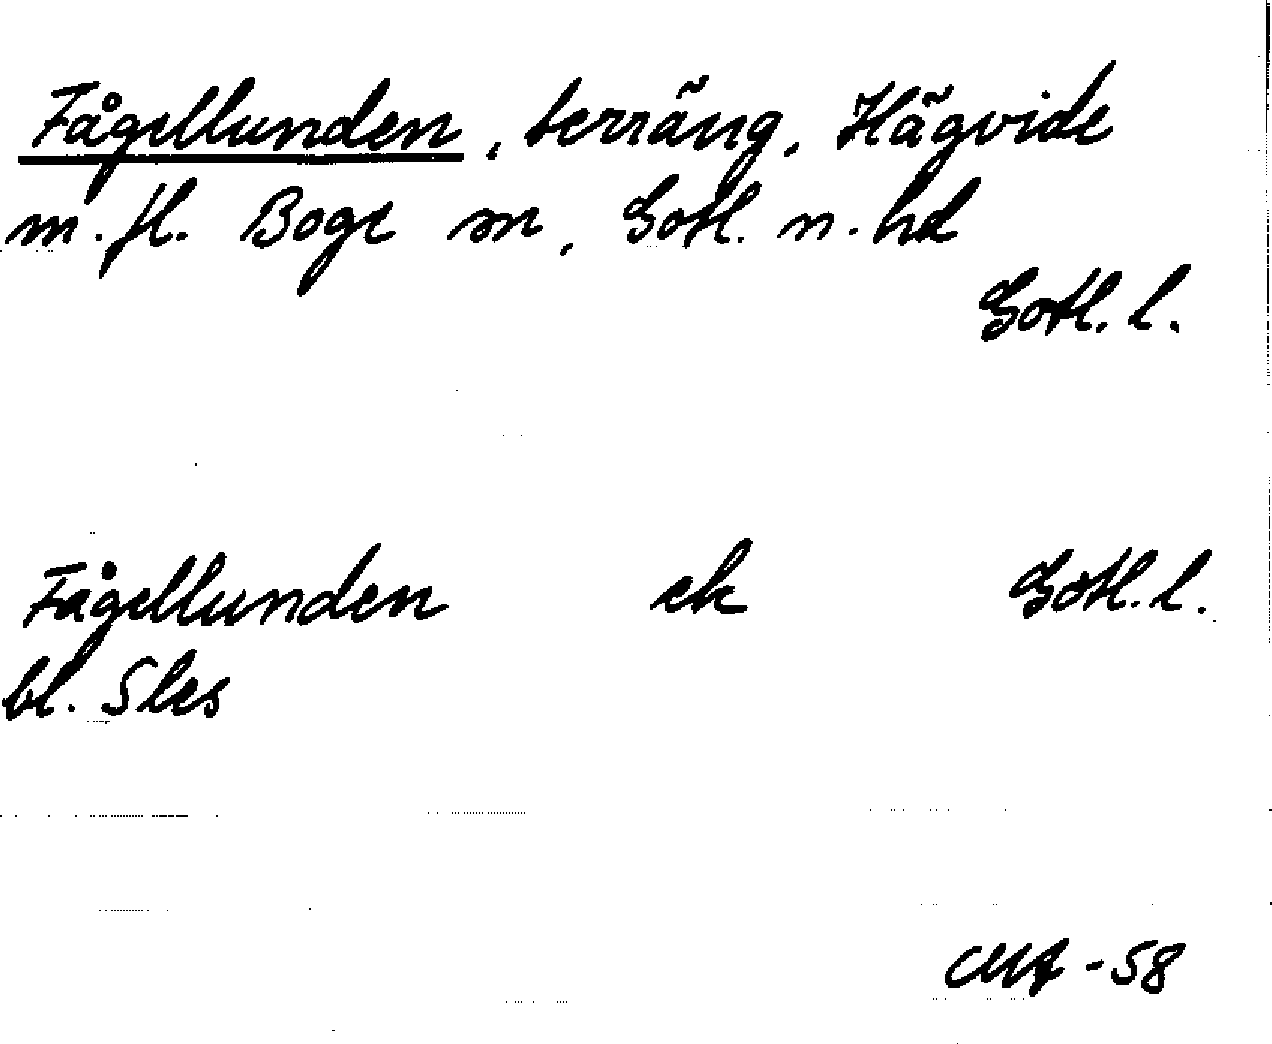 Fågellunden, terräng, Hägvide
m.fl. Boge sn, Gotl. n. hd
Gotl. l.
Fågellunden ek Gotl. l.
bl. Sles
-58